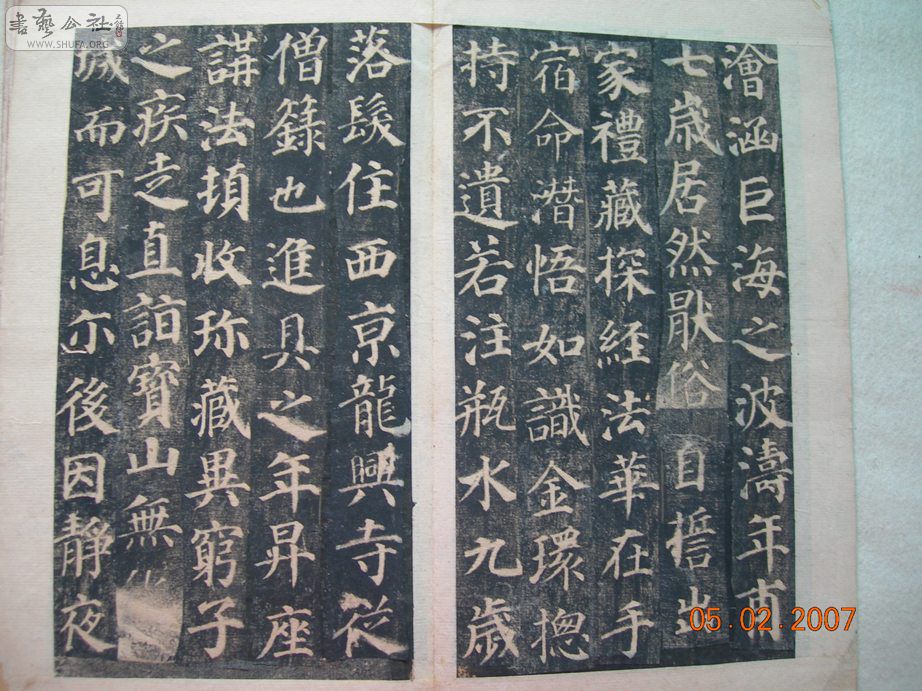 書藝公社
WWW.SHUFA.ORG
澮涵巨海之波濤年甫
七歲居然猒俗自誓出
家禮藏探經法華在手
宿命潛悟如識金環揔
持不遺若注瓶水九歲
落髮住西京龍興寺從
僧籙也進具之年昇座
講法頓收珍藏異窮子
之疾走直詣寶山無
城而可息尒後因靜夜
05.02.2007